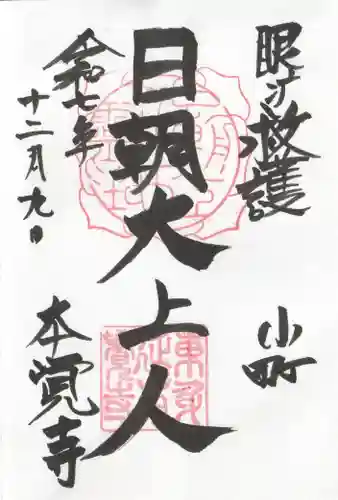 眼け救護
小町
日朝大上人
令和七年
十二月九日
本覚寺